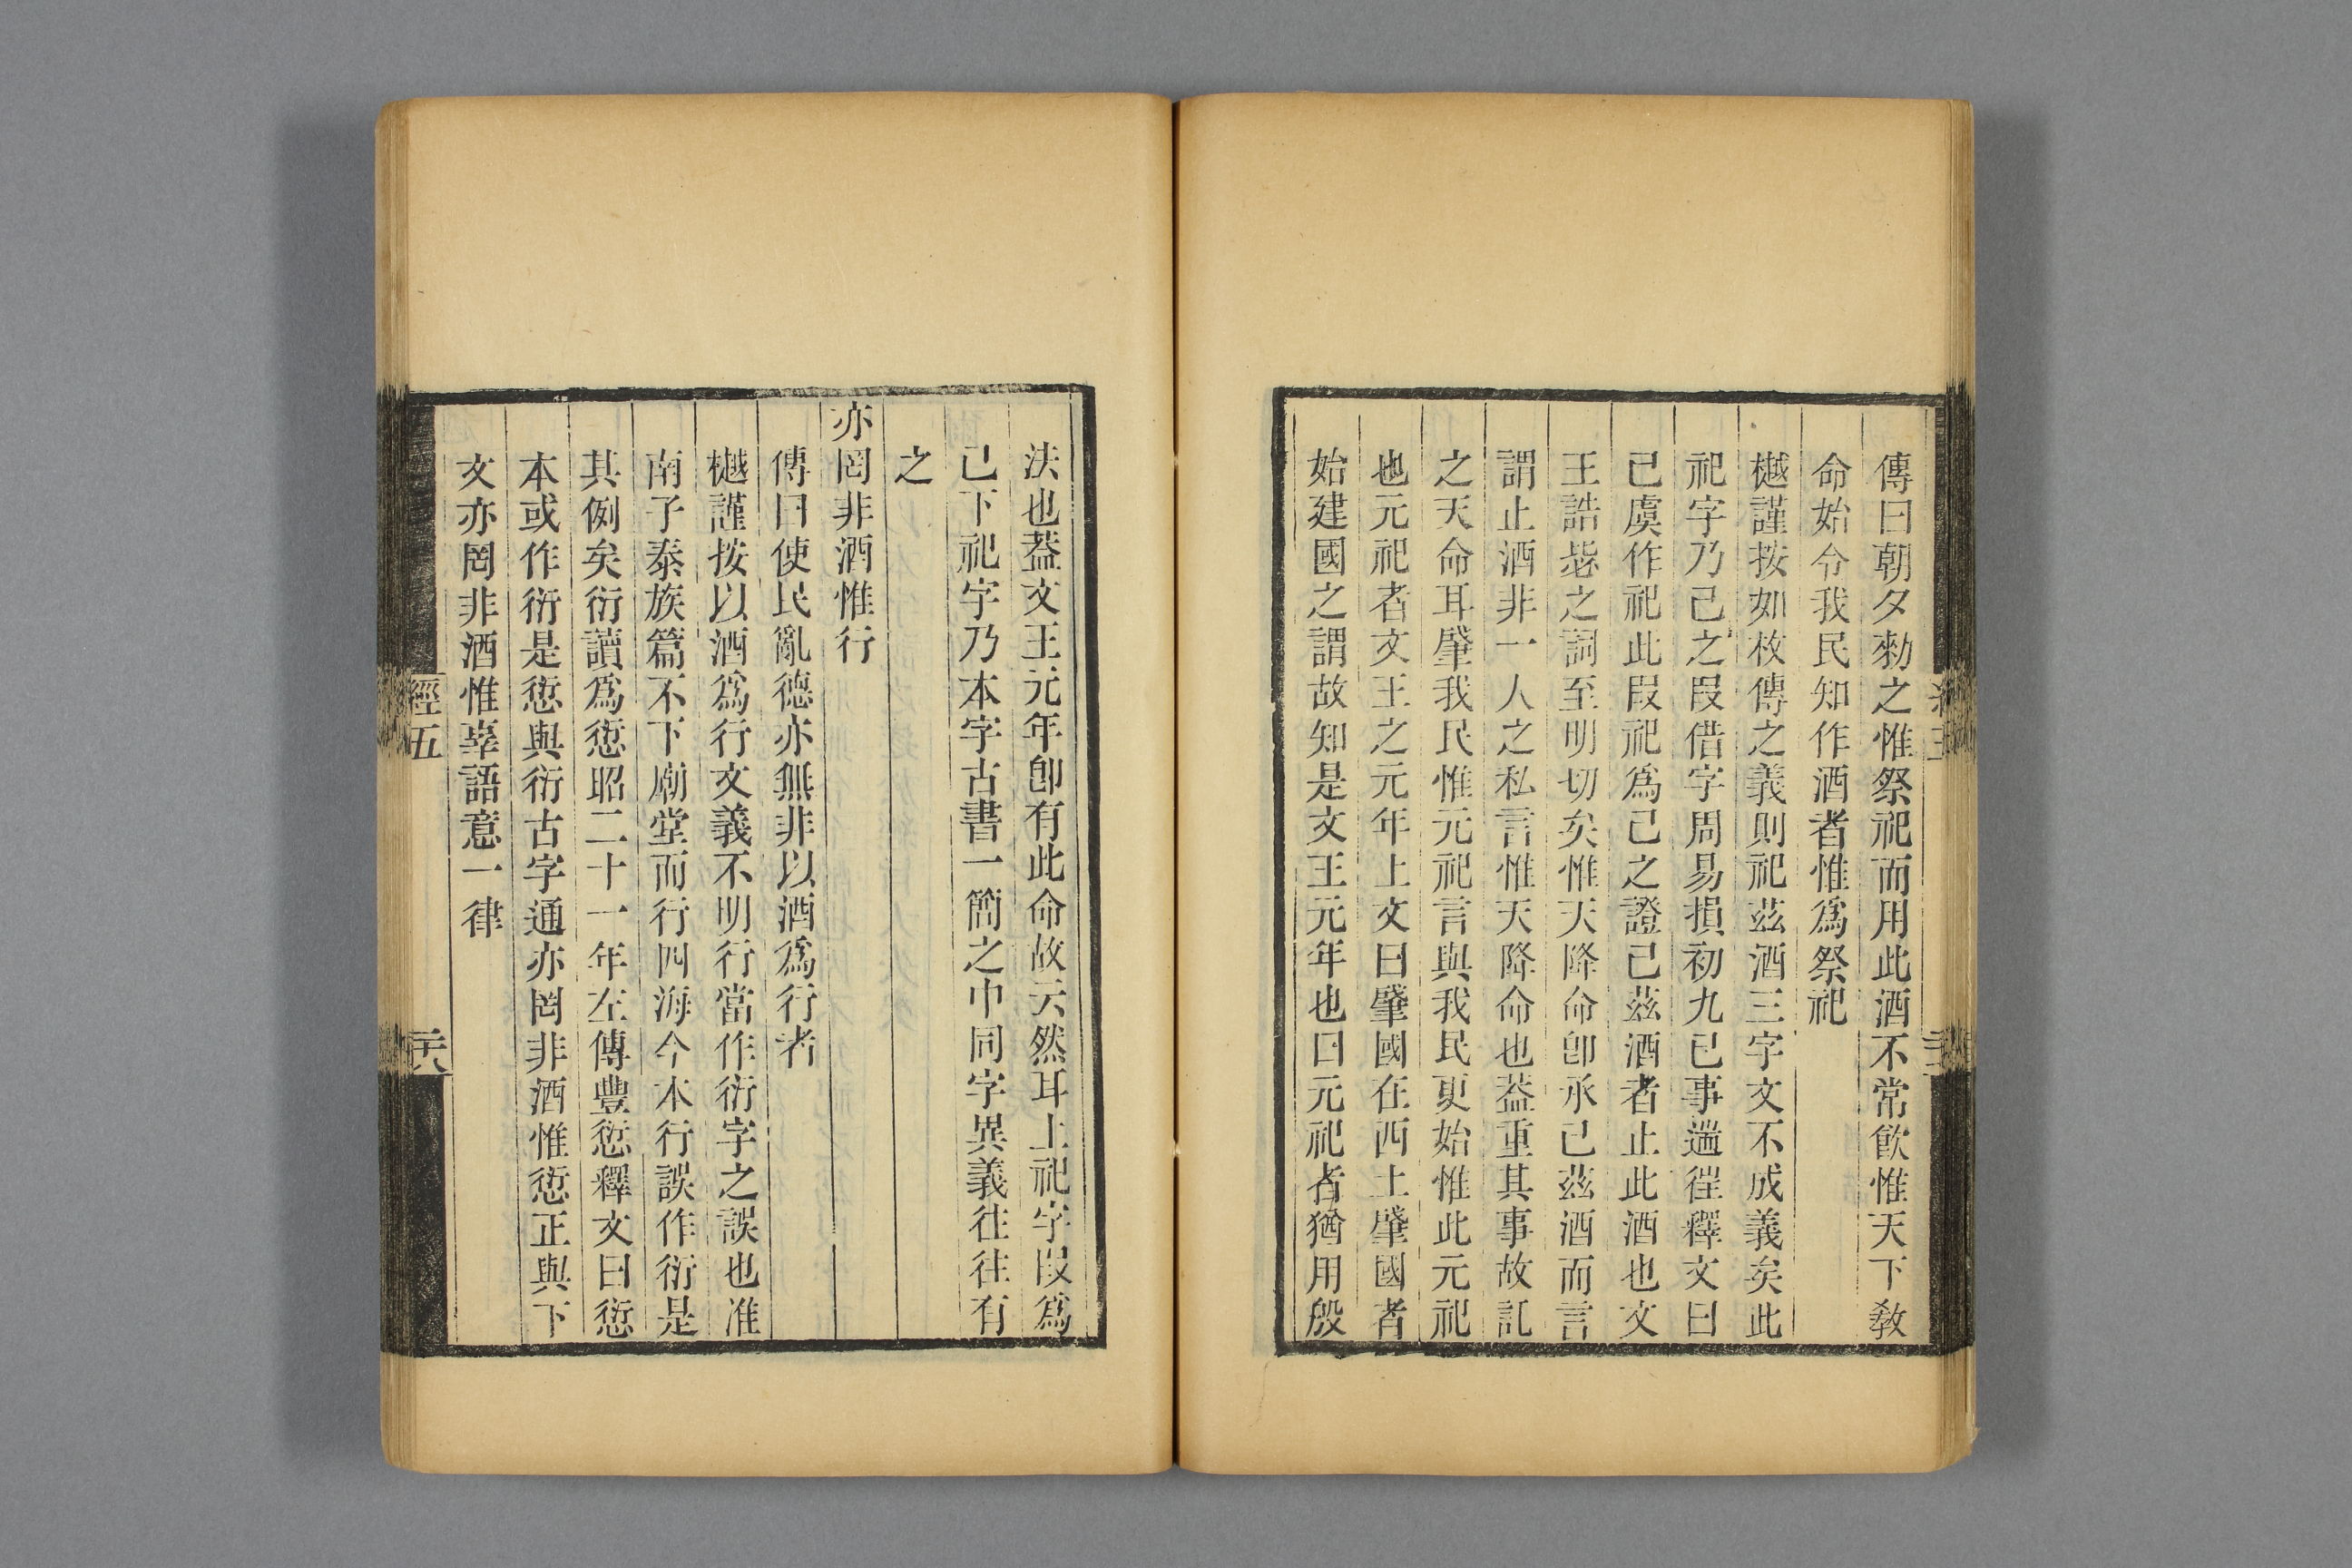 傳曰朝夕勑之惟祭祀而用此酒不常飮惟天下敎
命始令我民知作酒者惟爲祭祀
樾謹按如枚傳之義則祀茲酒三字文不成義矣此
祀字乃己之叚借字周易損初九已事遄徃釋文曰
己虞作祀此叚祀爲己之證己茲酒者止此酒也文
王誥毖之詞至明切矣惟天降命卽承己茲酒而言
謂止酒非一人之私言惟天降命也葢重其事故託
之天命耳肇我民惟元祀言與我民更始惟此元祀
也元祀者文王之元年上文曰肇國在西土肇國者
始建國之謂故知是文王元年也曰元祀者猶用殷
法也葢文王元年卽有此命故云然耳上祀字叚爲
己下祀字乃本字古書一簡之中同字異義往往有
之
亦罔非酒惟行
傳曰使民亂德亦無非以酒爲行者
樾謹按以酒爲行文義不明行當作衍字之誤也淮
南子泰族篇不下廟堂而行四海今本行誤作衍是
其例矣衍讀爲愆昭二十一年左傳豐愆釋文曰愆
本或作衍是愆與衍古字通亦罔非酒惟愆正與下
文亦罔非酒惟辜語意一律
經五
二十八